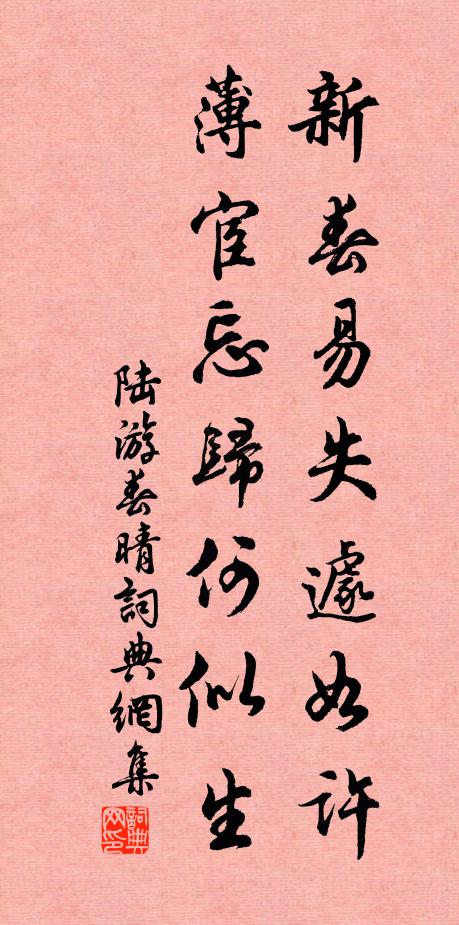 新春易失遽如许
薄宦忘歸何似生
陆游春晴詞典網集
詞典网印